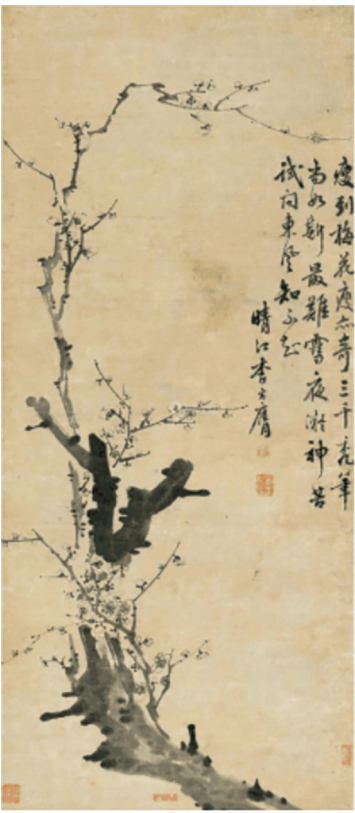 瘦到梅花瘦亦奇三千禿筆
尚如斯最難雪夜凝神苦
試问東風知不知
晴江李方膺